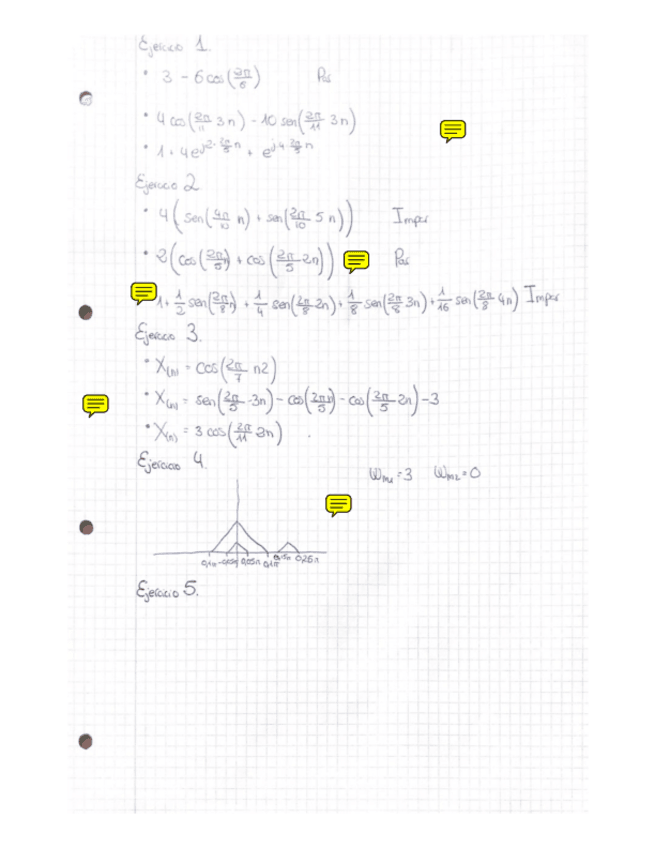 Ejercicio 1.
• 3 - 6 cos(2π/6) Par
• 4 cos(2π/11 3n) - 10 sen(2π/11 3n)
• 1 + 4e^{j2·2π/5 n} + e^{j·4·2π/5 n}
Ejercicio 2
• 4(sen(4π/10 n) + sen(2π/10 5n)) Impar
• 2(cos(2π/5 n) + cos(2π/5 2n)) Par
1 + 1/2 sen(2π/8 n) + 1/4 sen(2π/8 2n) + 1/8 sen(2π/8 3n) + 1/16 sen(2π/8 4n) Impar
Ejercicio 3.
• X(n) = cos(2π/7 n2)
• X(n) = sen(2π/5 3n) - cos(2π/5 n) - cos(2π/5 2n) - 3
• X(n) = 3 cos(2π/11 3n)
Ejercicio 4.
ωm1 = 3 ωm2 = 0
0,1π -0,05π 0,05π 0,1π 0,15π 0,25π
Ejercicio 5.